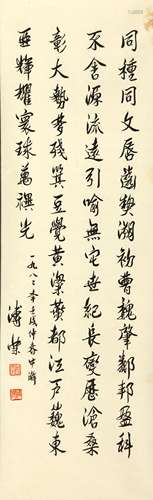 同種同文唇齒契溯初曹魏肇鄰邦盈科
不舍源流遠引喻無定世紀長變歷滄桑
彰大勢夢殘箕豆覺黃粱黃都江戶巍東
亞輝耀寰球萬禩光
一九八二年壬戌仲春中澣
溥傑